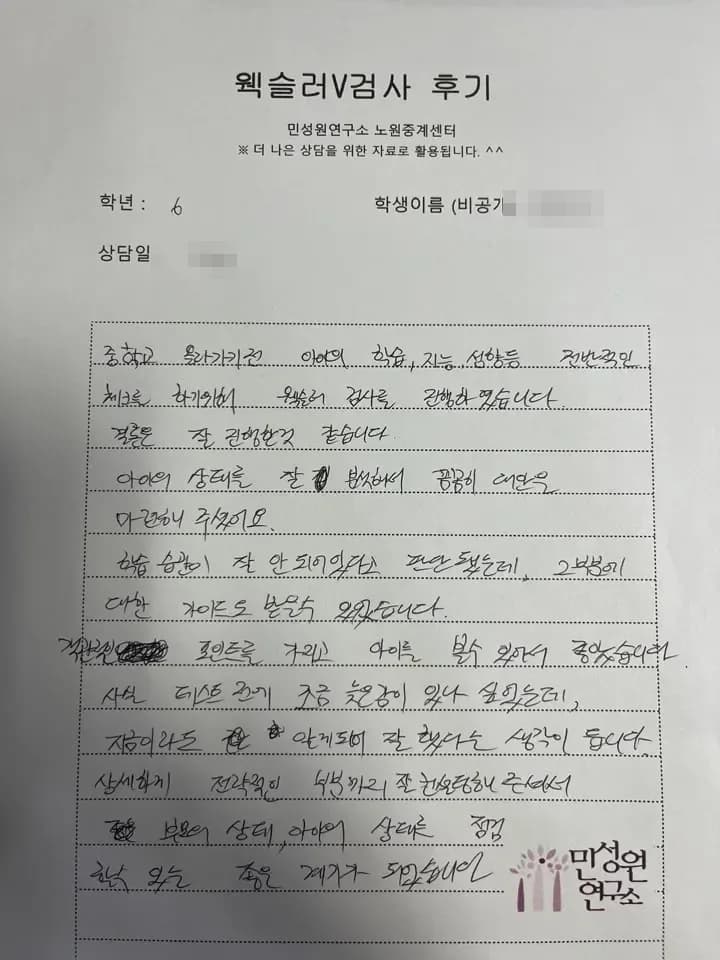 웩슬러V검사 후기
민성원연구소 노원중계센터
※ 더 나은 상담을 위한 자료로 활용됩니다. ^^
학년 : 6
학생이름 (비공개
상담일
중학교 올라가기전 아이의 학습, 지능, 성향등 전반적인
체크를 하기위해 웩슬러 검사를 진행하였습니다.
결론은 잘 진행한것 같습니다.
아이의 상태를 잘 분석해서 꼼꼼히 대안을
마련해 주셨어요.
학습 습관이 잘 안되어있다고 판단 됐는데, 그부분에
대한 가이드도 받을수 있었습니다.
객관적인 포인트를 가지고 아이를 볼수 있어서 좋았습니다
사실 테스트 전에 조금 늦은감이 있나 싶었는데,
지금이라도 알게되어 잘 했다는 생각이 듭니다.
상세하게 전략적인 부분까지 잘 해주셔서
부모의 상태, 아이의 상태를 점검
할수 있는 좋은 계기가 되었습니다
민성원
연구소